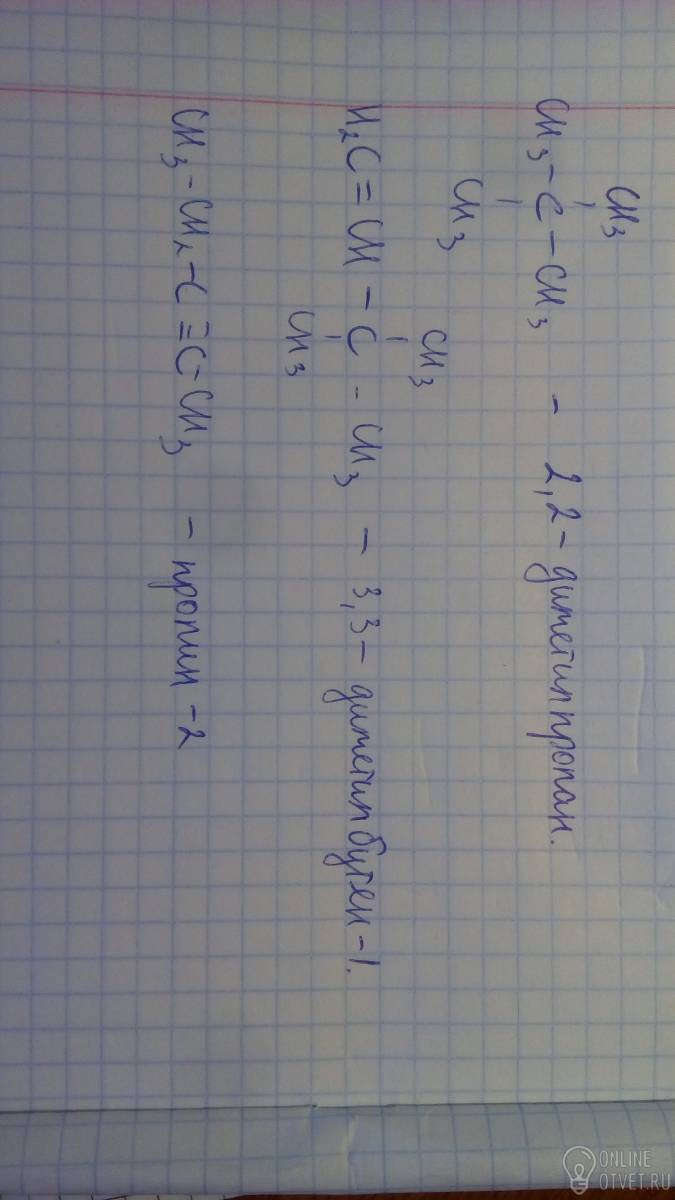 CH3
CH3 - C - CH3 - 2,2 - диметилпропан.
CH3
CH3
H2C = CH - C - CH3 - 3,3 - диметилбутен - 1.
CH3
CH3 - CH2 - C ≡ C - CH3 - пропин - 2
ONLINE
OTVET.RU